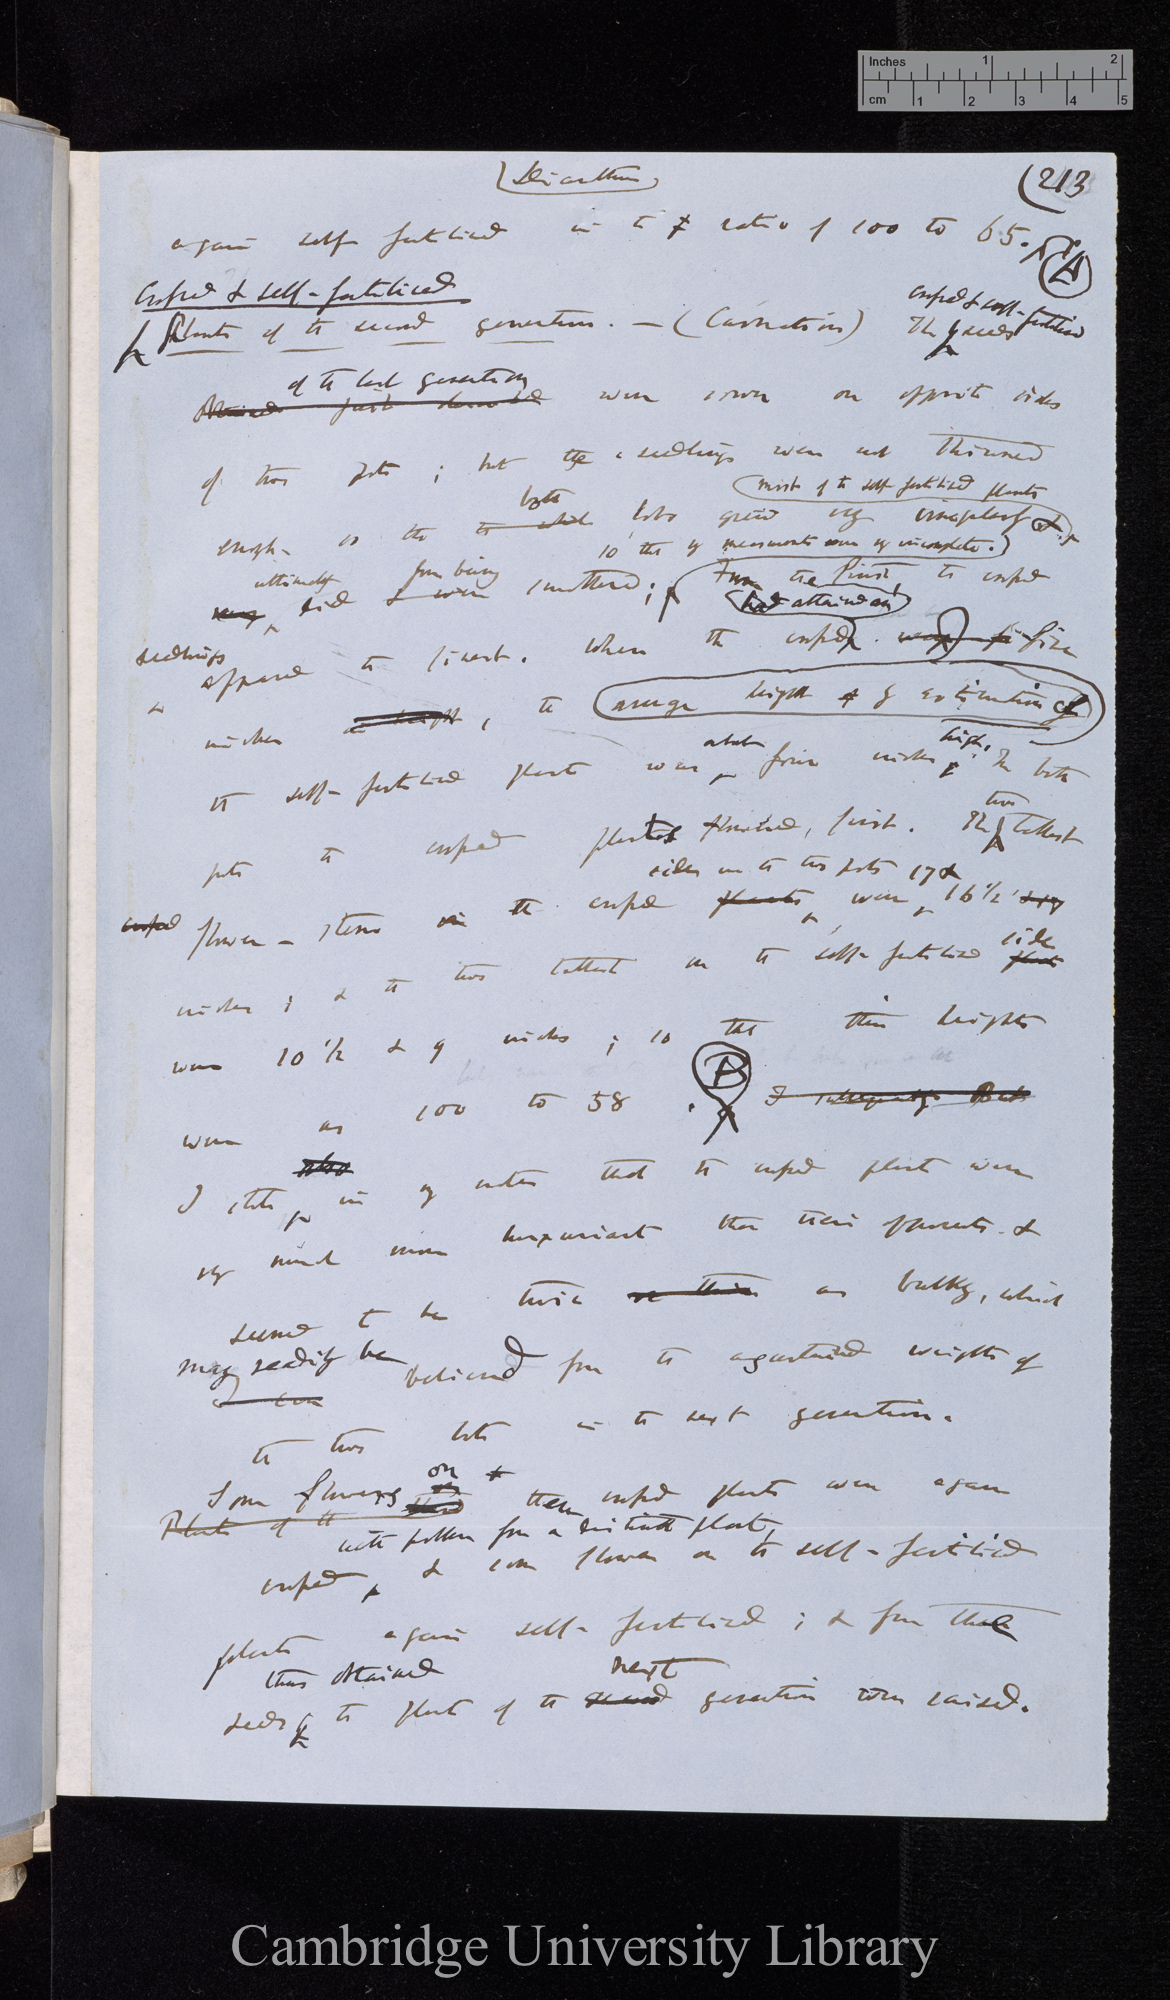 Dianthus
(213
again self-fertilised in the ratio of 100 to 65. (A)
Crossed & self-fertilised
crossed & self-fertilised
Plants of the second generation. — (Carnation) The seeds
of the last generation
were sown on opposite sides
of two pots; but the seedlings were not thinned
most of the self-fertilised plants
enough so the both lots grew very irregularly &
so that my measurements were very incomplete.
ultimately from being
died smothered; From the first, the crossed
had attained an
seedlings
appeared the finest. When the crossed five
average height of by estimation of
inches, the
about high.
the self-fertilised plants was four inches. In both
two
pots the crossed plants flowered first. The tallest
sides in the two pots 17 &
crossed flower-stems on the crossed plants were 16 1/2
side
inches; & the two tallest on the self-fertilised plants
were 10 1/2 & 9 inches; so that their heights
were as 100 to 58. (B) I subsequently
also
I state in my notes that the crossed plants were
very much more luxuriant than their opponents &
seemed to be twice as bulky, which
may readily be
I can believed from the ascertained weights of
the two lots in the next generation.
on
Some flowers these crossed plants were again
Plants of the
with pollen from a distinct plant,
crossed, & some flowers on the self-fertilised
plants again self-fertilised; & from the
thus obtained next
seeds the plants of the second generation were raised.
Inches 1 2
cm 1 2 3 4 5
Cambridge University Library